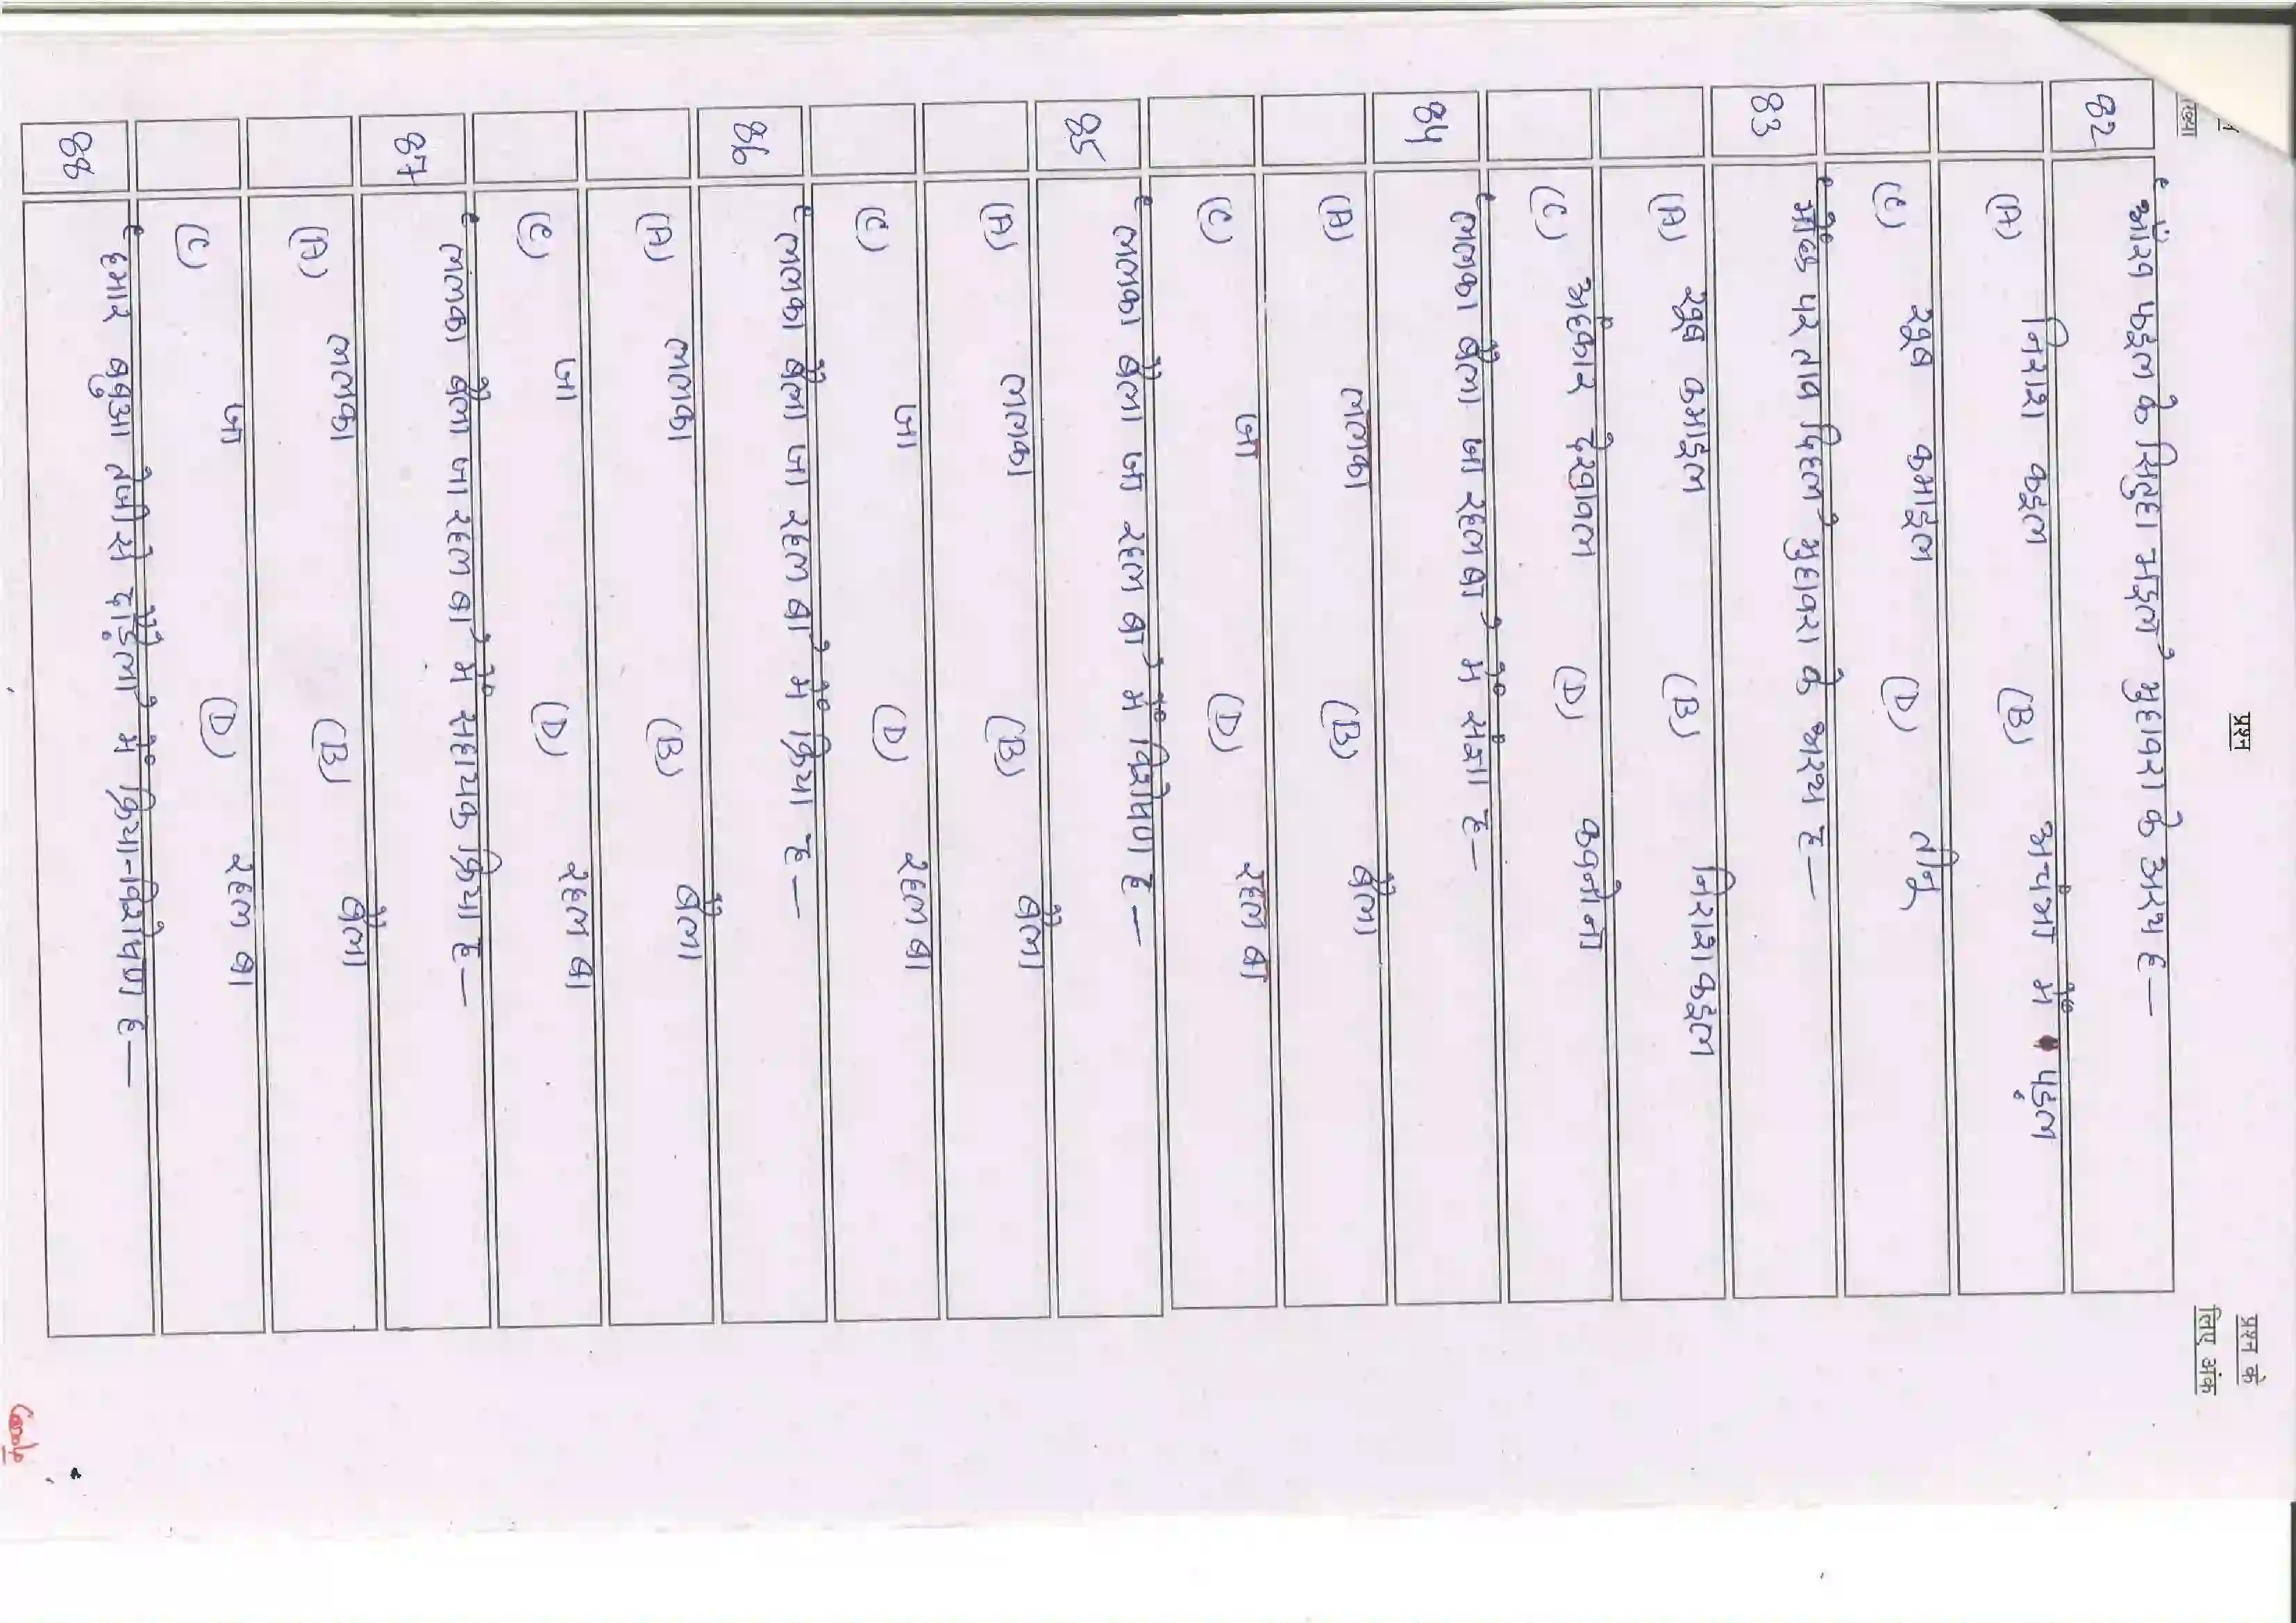 प्रश्न
प्रश्न के
लिए अंक
82 'आँख फइल के सितुहा भइल' मुहावरा के अरथ ह —
(A) निराश कइल (B) अचंभा में पड़ल
(C) खूब कमाइल (D) तीनू
83 'मोंछ पर ताव दिहल' मुहावरा के अरथ ह —
(A) खूब कमाइल (B) निराश कइल
(C) अहंकार देखावल (D) कवनो ना
84 'ललका बैला जा रहल बा' में संज्ञा ह —
(A) ललका (B) बैला
(C) जा (D) रहल बा
85 'ललका बैला जा रहल बा' में विशेषण ह —
(A) ललका (B) बैला
(C) जा (D) रहल बा
86 'ललका बैला जा रहल बा' में क्रिया ह —
(A) ललका (B) बैला
(C) जा (D) रहल बा
87 'ललका बैला जा रहल बा' में सहायक क्रिया ह —
(A) ललका (B) बैला
(C) जा (D) रहल बा
88 'हमार बबुआ तेजी से दौड़ला' में क्रिया-विशेषण ह —